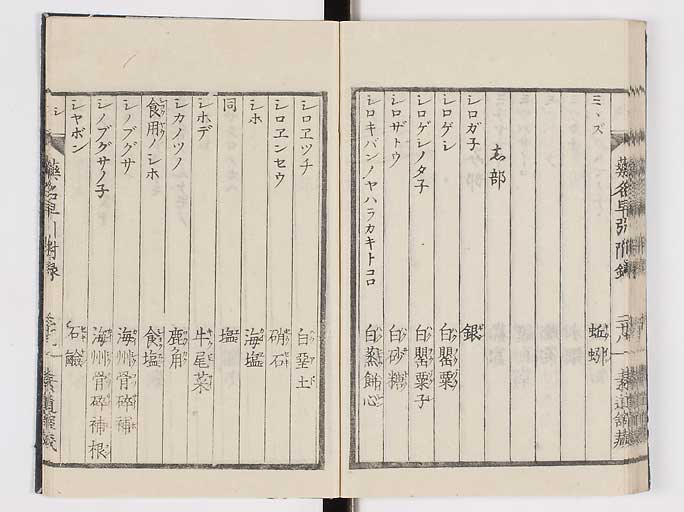 藥名早引附録
ミヽズ
蚯蚓
志部
シロガ子
銀
シロゲシ
白罌粟
シロゲシノタ子
白罌粟子
シロザトウ
白砂糖
シロキバンノヤハラカキトコロ
白蒸餅心
シロヱツチ
白堊土
シロヱンセウ
硝石
シホ
海塩
同
塩
シホデ
牛尾菜
シカノツノ
鹿角
食用ノシホ
食塩
シノブグサ
海州骨碎補
シノブグサノ子
海州骨碎補根
シヤボン
石鹼
シ
藥名早引附録